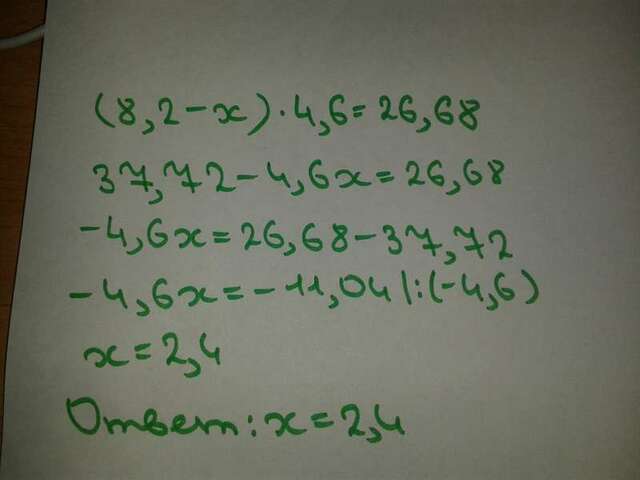 (8,2-x)·4,6=26,68
37,72-4,6x=26,68
-4,6x=26,68-37,72
-4,6x=-11,04|:(-4,6)
x=2,4
Ответ: x=2,4